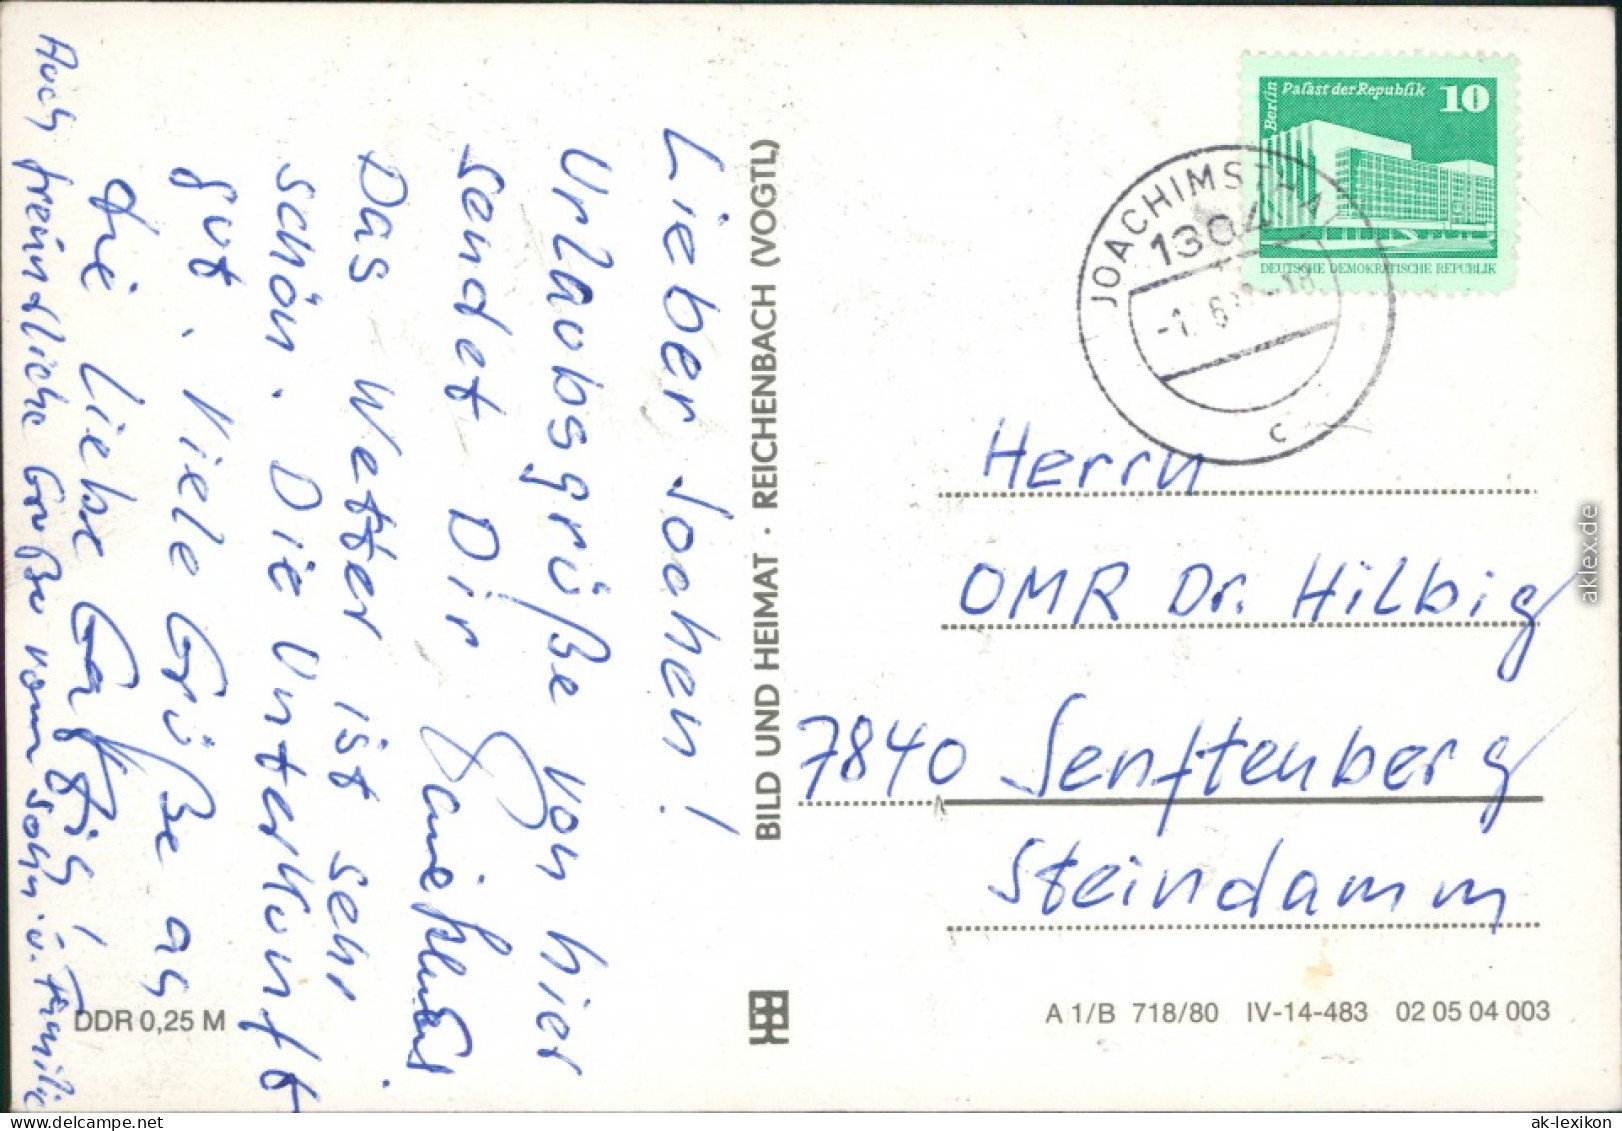 Lieber Jochen!
Urlaubsgrüße von hier
sendet Dir
Das Wetter ist sehr
schön. Die Unterkunft
gut. Viele Grüße an
die liebe
Auch freundliche Grüße vom Sohn u. Familie
DDR 0,25 M
BILD UND HEIMAT · REICHENBACH (VOGTL)
Berlin
Palast der Republik 10
DEUTSCHE DEMOKRATISCHE REPUBLIK
JOACHIMSTHAL
1304
-1. 6. -18
c
Herrn
OMR Dr. Hilbig
7840 Senftenberg
Steindamm
A 1/B 718/80 IV-14-483 02 05 04 003
aklex.de
ak-lexikon